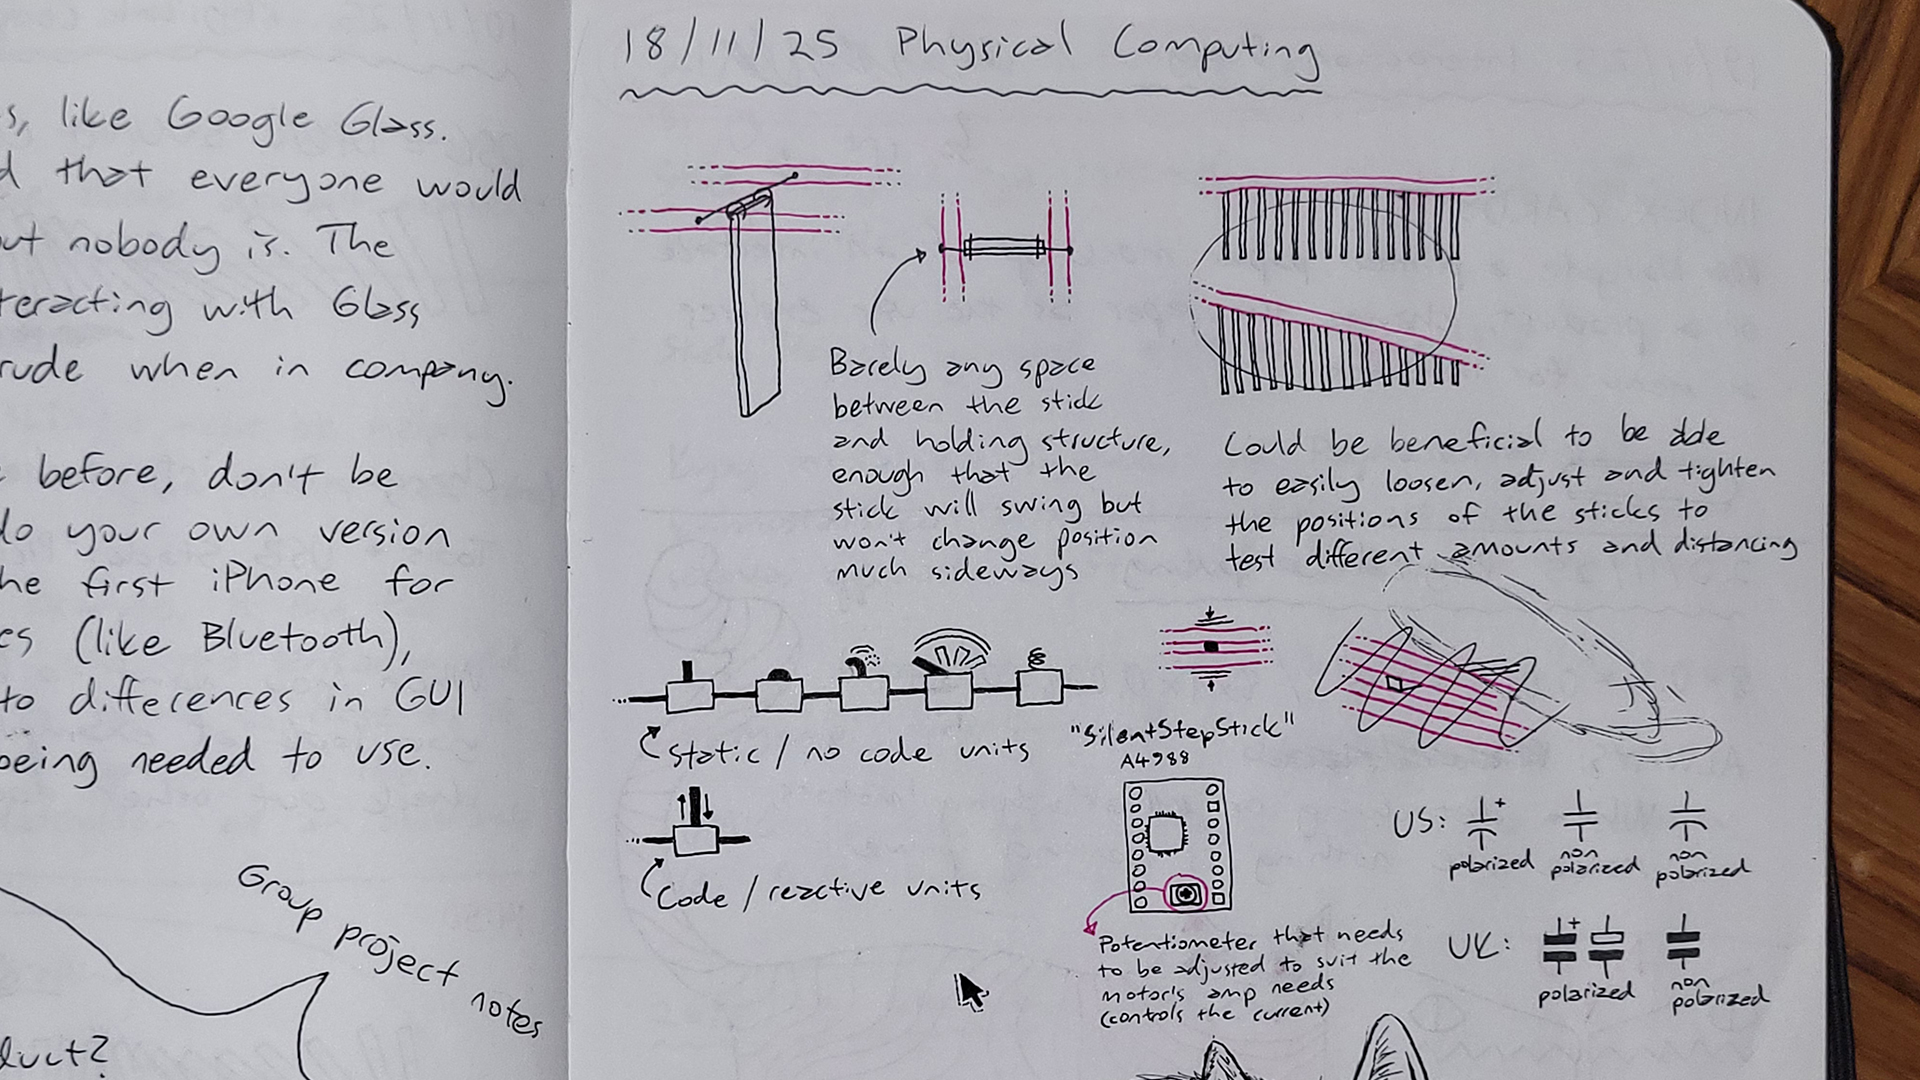 s, like Google Glass.
d that everyone would
ut nobody is. The
teracting with Glass
rude when in company.
before, don't be
do your own version
he first iPhone for
es (like Bluetooth),
to differences in GUI
being needed to use.
Group project notes
duct?
18/11/25 Physical Computing
Barely any space
between the stick
and holding structure,
enough that the
stick will swing but
won't change position
much sideways
Could be beneficial to be able
to easily loosen, adjust and tighten
the positions of the sticks to
test different amounts and distancing
static / no code units
Code / reactive units
"SilentStepStick"
A4988
Potentiometer that needs
to be adjusted to suit the
motor's amp needs
(controls the current)
US:
+
polarized
non
polarized
non
polarized
UK:
+
polarized
non
polarized